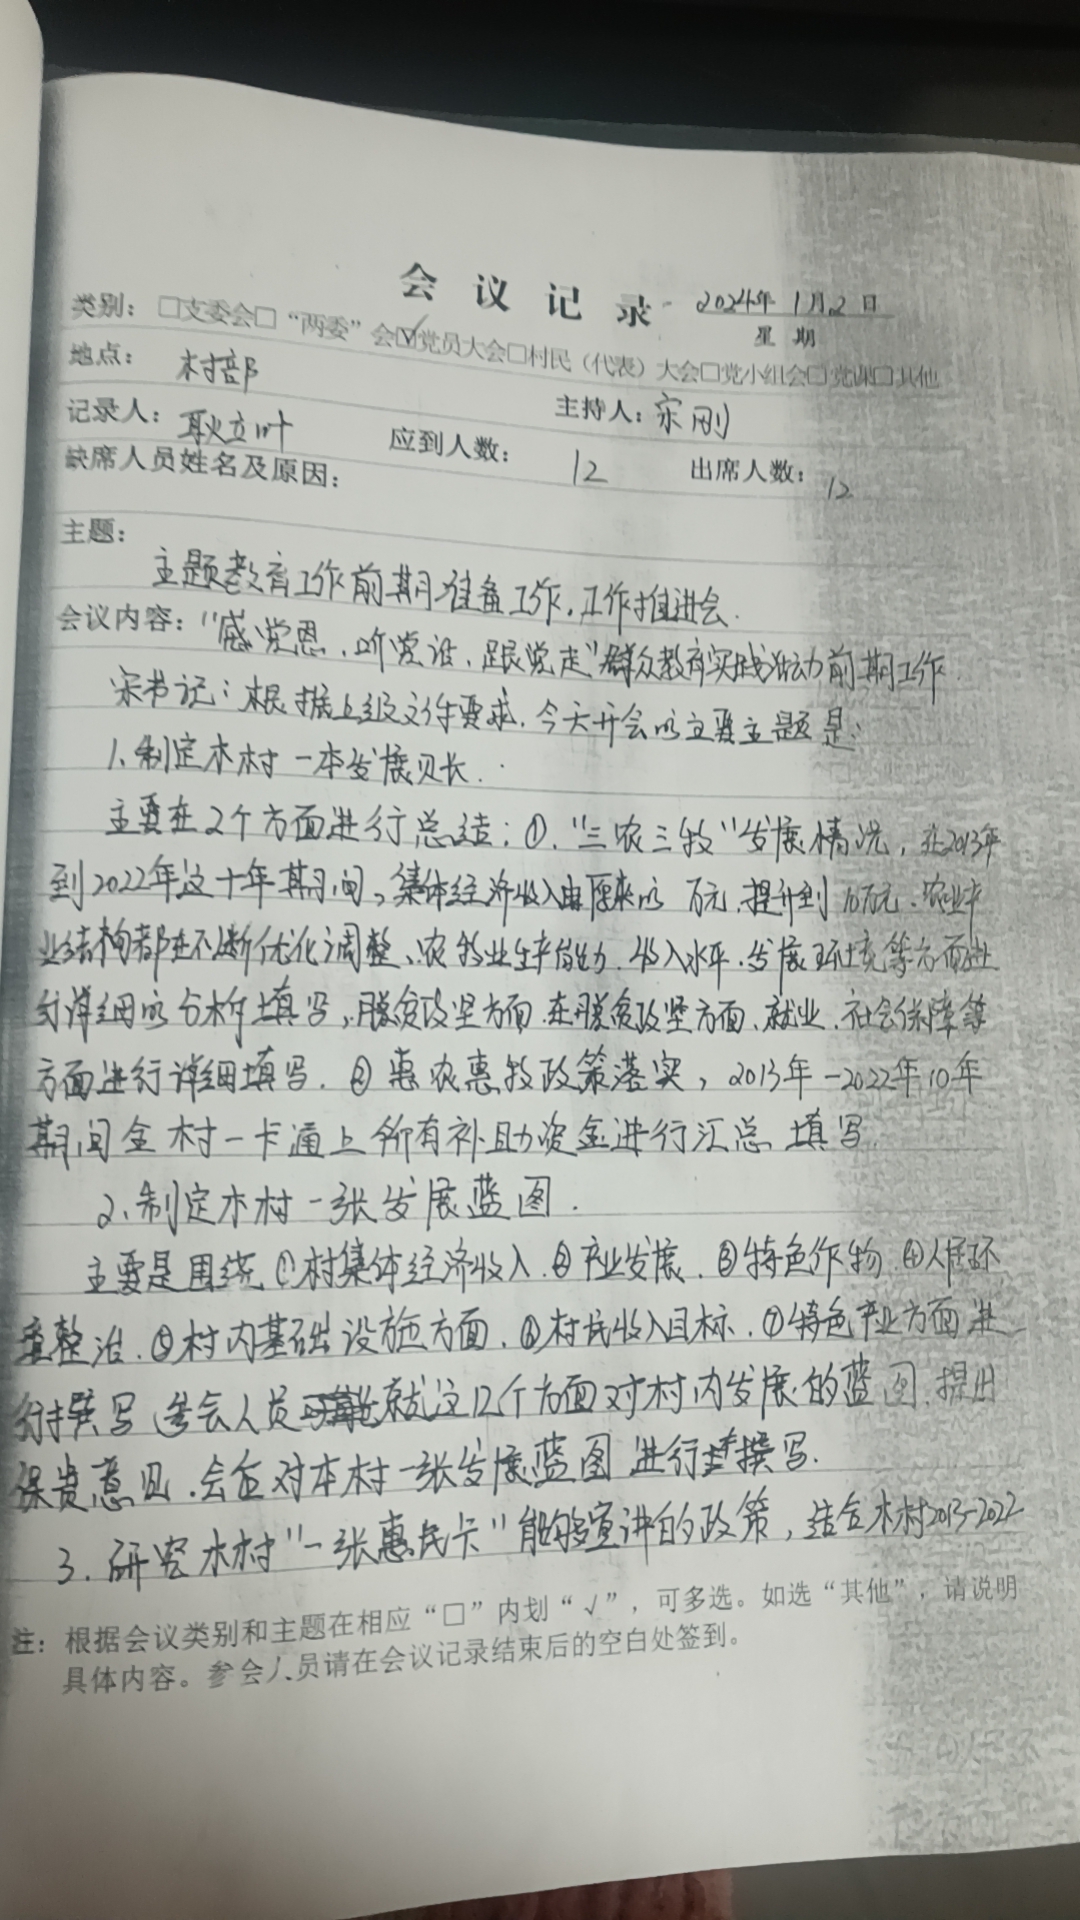 会议记录 2024年1月2日
星期
类别：□支委会□“两委”会☑党员大会□村民（代表）大会□党小组会□党课□其他
地点：村部
主持人：宋刚
记录人：耿立叶 应到人数：12 出席人数：12
缺席人员姓名及原因：
主题：
主题教育工作前期准备工作，工作推进会.
会议内容：“感党恩、听党话、跟党走”群众教育实践活动前期工作.
宋书记：根据上级文件要求，今天开会的主要主题是：
1、制定本村一本发展成长.
主要在2个方面进行总结：①、“三农三牧”发展情况，在2013年
到2022年这十年期间，集体经济收入由原来的 万元，提升到10万元、农业产
业结构都在不断优化调整、农牧业生产能力、收入水平、发展环境等方面进
行详细的分析填写，脱贫攻坚方面 在脱贫攻坚方面、就业、社会保障等
方面进行详细填写. ②惠农惠牧政策落实，2013年-2022年10年
期间全村一卡通上所有补助资金进行汇总、填写.
2、制定本村一张发展蓝图.
主要是围绕①村集体经济收入.②产业发展.③特色作物.④人居环
境整治.⑤村内基础设施方面.⑥村民收入目标.⑦特色产业方面进
行撰写，参会人员就这几个方面对村内发展的蓝图，提出
保贵意见.会后对本村一张发展蓝图进行撰写.
3. 研究本村“一张惠民卡”能够宣讲的政策，结合本村2013-2022
注：根据会议类别和主题在相应“□”内划“√”，可多选。如选“其他”，请说明
具体内容。参会人员请在会议记录结束后的空白处签到。